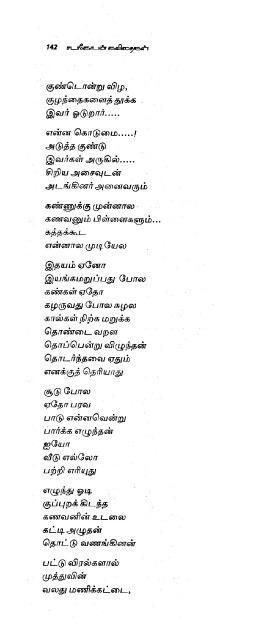 142 உயிர்த்தெழும் கவிதைகள்
குண்டொன்று விழ,
குழந்தைகளைத் தூக்க
இவர் ஓடுறார்.....
என்ன கொடுமை.....!
அடுத்த குண்டு
இவர்கள் அருகில்.....
சிறிய அசைவுடன்
அடங்கினர் அனைவரும்
கண்ணுக்கு முன்னால
கணவனும் பிள்ளைகளும்...
கத்தக்கூட
என்னால முடியேல
இதயம் ஏனோ
இயங்கமறுப்பது போல
கண்கள் ஏதோ
கழருவது போல சுழல
கால்கள் நிற்க மறுக்க
தொண்டை வறள
தொப்பென்று விழுந்தன்
தொடர்ந்தவை ஏதும்
எனக்குத் தெரியாது
சூடு போல
ஏதோ பரவ
பாடு என்னவென்று
பார்க்க எழுந்தன்
ஐயோ
வீடு எல்லோ
பற்றி எரியுது
எழுந்து ஓடி
குப்புறக் கிடந்த
கணவனின் உடலை
கட்டி அழுதன்
தொட்டு வணங்கினன்
பட்டு விரல்களால்
முத்துவின்
வலது மணிக்கட்டை,